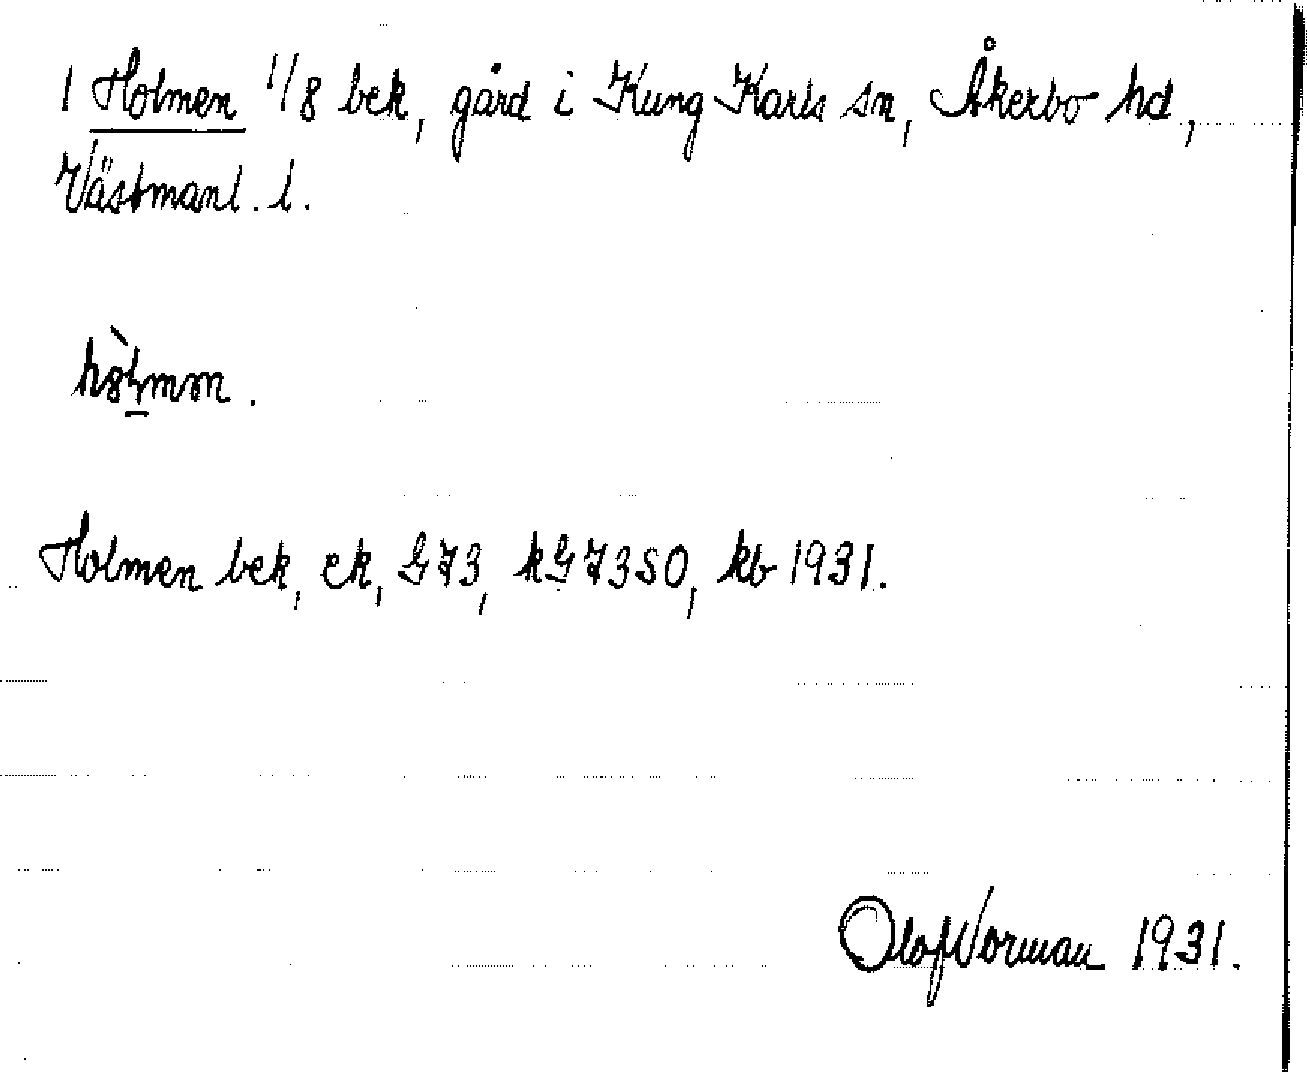 1 Holmen 1/8 bek, gård i Kung Karls sn, Åkerbo hd,
Västmanl. l.
Holmen bek, ek, G73, kG73SO, kb 1931.
Olof Norman 1931.